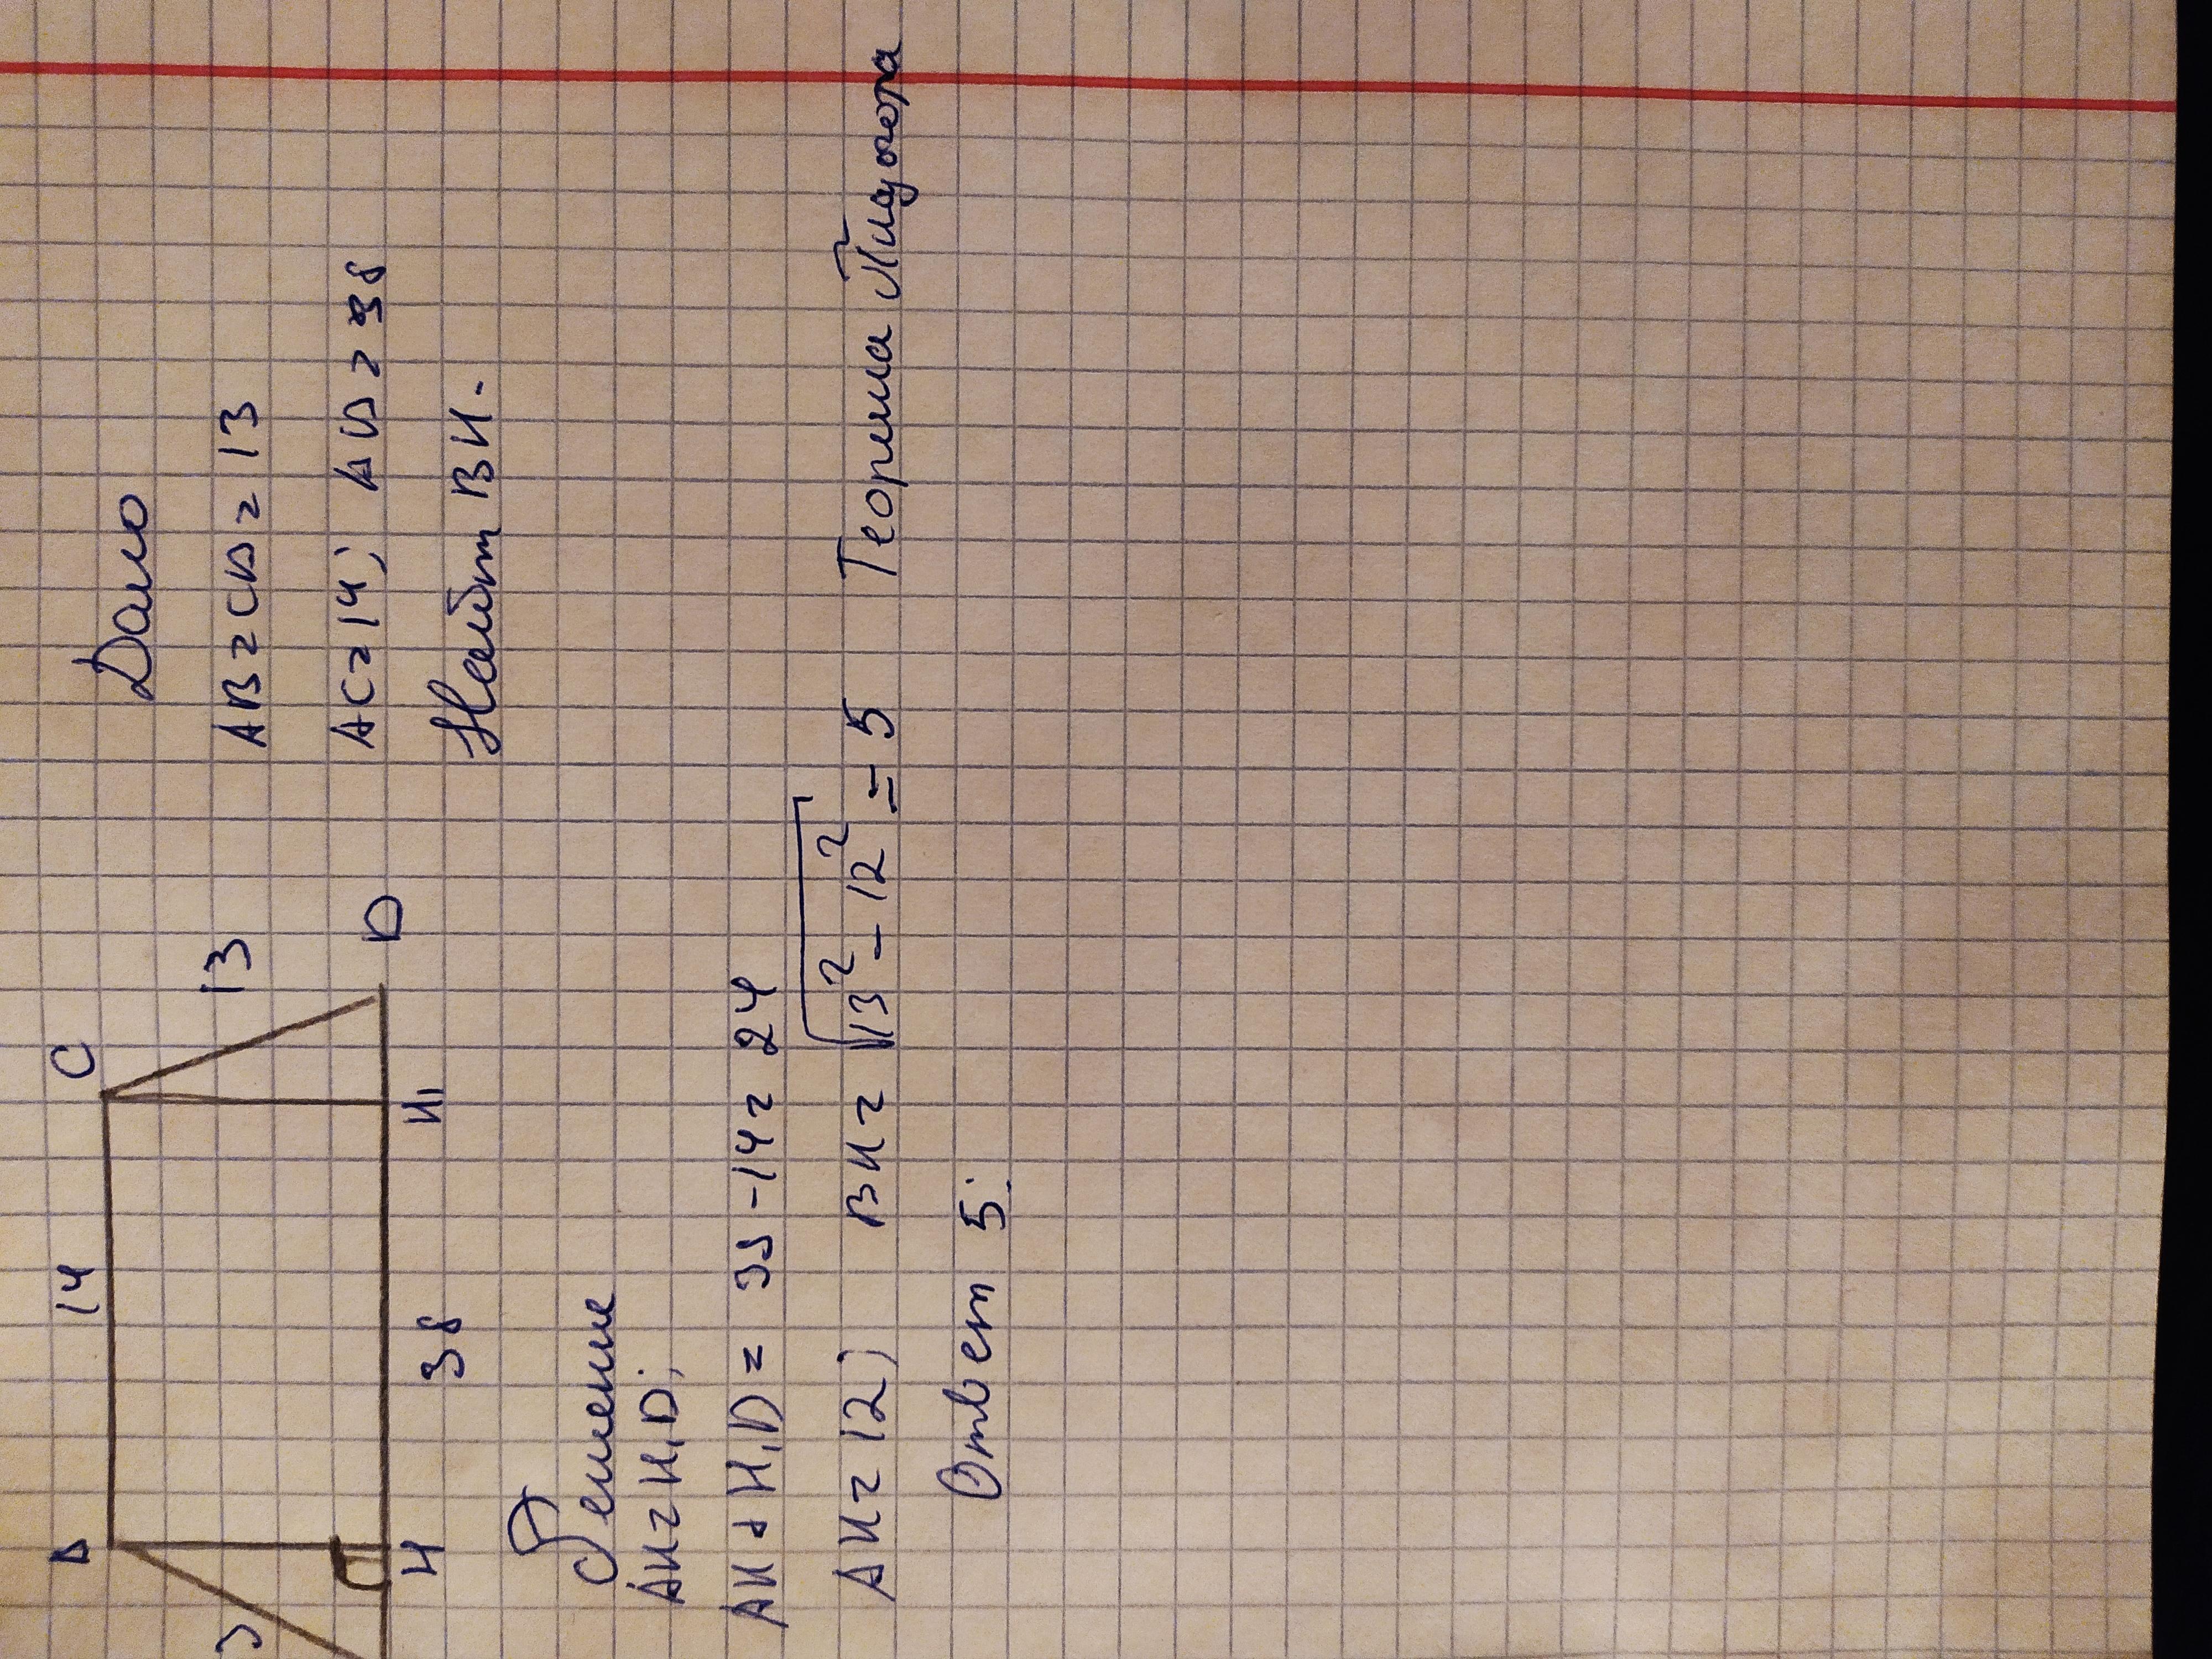 B 14 C
13
D
H
H₁
38
Дано
AB = CD = 13
AC = 14; AD = 38
Найт BH.
Решение
AH = H₁D;
AH + H₁D = 38 - 14 = 24
AH = 12) BH = √13² - 12² = 5 Теорема Пифагора
Ответ 5.